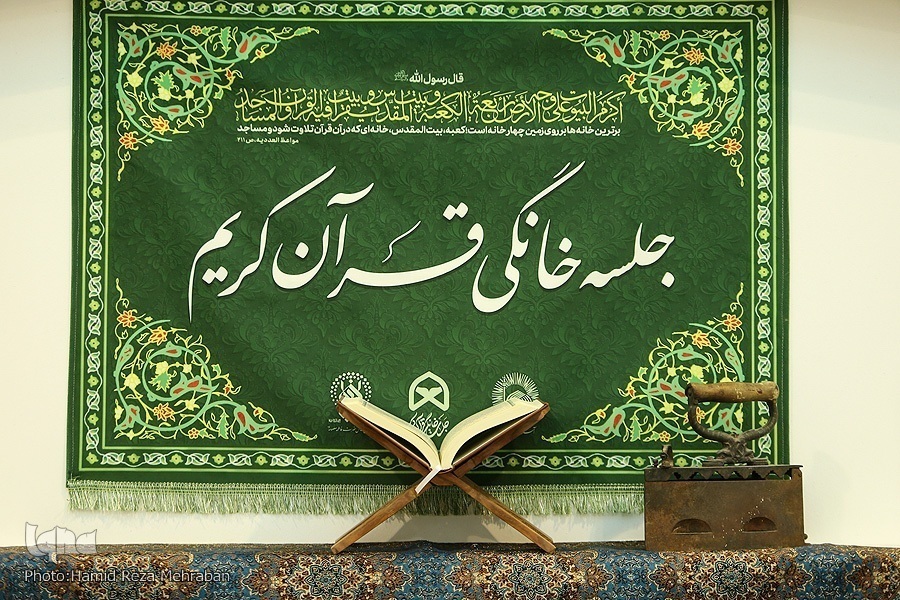 قال رسول الله ﷺ
اکرم البیوت علی وجه الارض اربعة الکعبة و بیت المقدس و بیت یقرا فیه القرآن و المساجد
برترین خانه ها بر روی زمین چهار خانه است؛ کعبه، بیت المقدس، خانه ای که در آن قرآن تلاوت شود و مساجد
مواعظ العددیه، ص ۲۱۱
جلسه خانگی قرآن کریم
iqna
Photo:Hamid Reza Mehraban